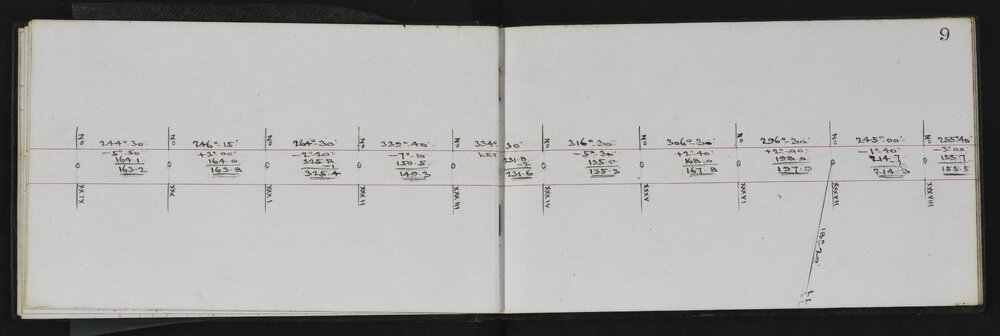 9
No XXIX
244° 30'
-5° 50
164.1
163.2
No XXX
246° 15'
+3° 00'
164.0
163.8
No
264° 30'
-2° 20'
325.8
325.4
No
339° 40'
-7° 10
150.5
149.3
No XXXIII
334° 30'
LEV
231.8
231.6
XXXIV
316° 30'
-5° 30'
135.3
No XXXV
306° 30
+2° 40'
168.0
167.8
No XXXVI
296° 30'
+2° 00'
198.0
197.9
No XXXVII
18° 20'
245° 00'
-1° 40'
214.7
214.3
No XXXVIII
255° 40'
-3° 00
155.7
155.5